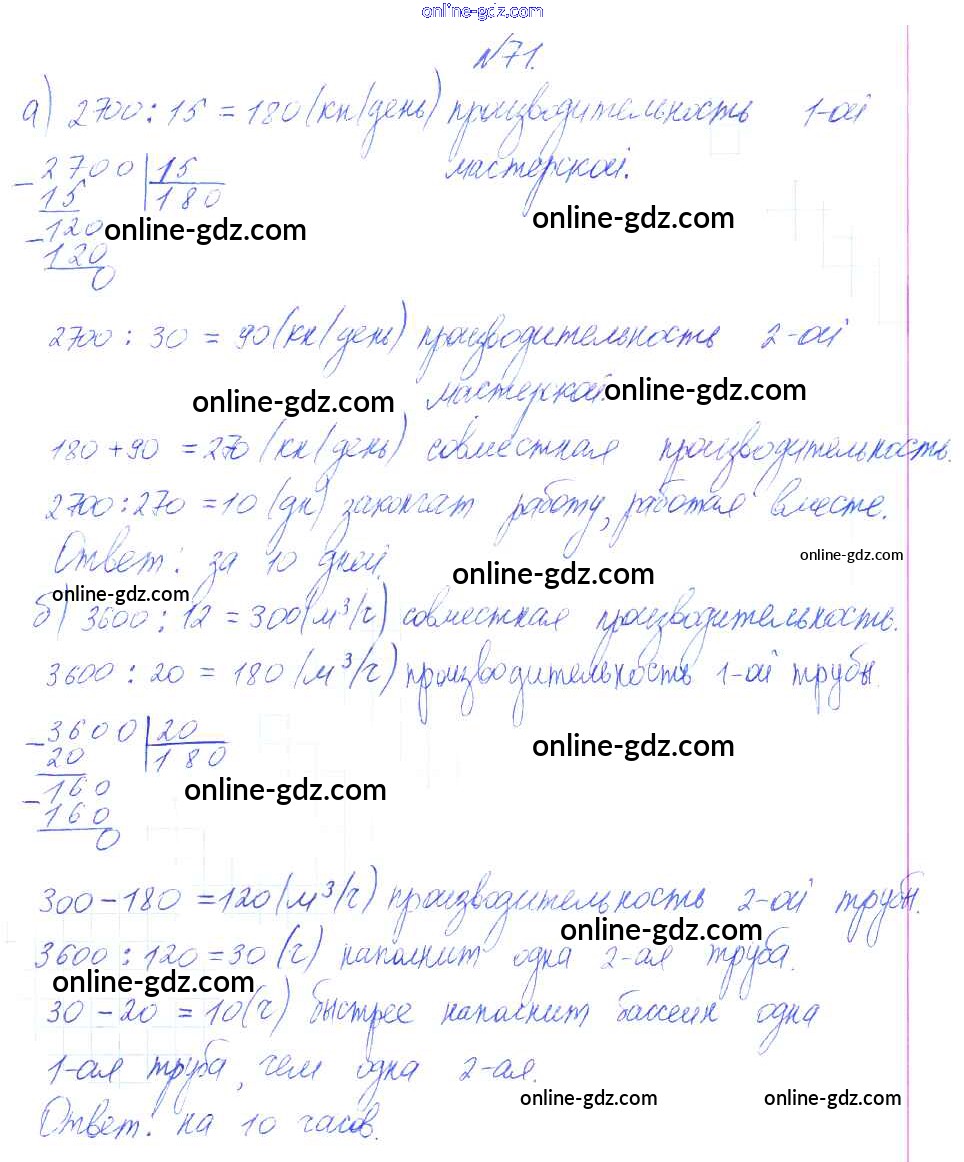 online-gdz.com
№71.
а) 2700 : 15 = 180 (кн/день) производительность 1-ой
мастерской.
- 2700 | 15
15 | 180
- 120
120
0
online-gdz.com
online-gdz.com
2700 : 30 = 90 (кн/день) производительность 2-ой
мастерской.
online-gdz.com
online-gdz.com
180 + 90 = 270 (кн/день) совместная производительность.
2700 : 270 = 10 (дн) закончат работу, работая вместе.
Ответ: за 10 дней.
online-gdz.com
online-gdz.com
online-gdz.com
б) 3600 : 12 = 300 (м³/ч) совместная производительность.
3600 : 20 = 180 (м³/ч) производительность 1-ой трубы.
- 3600 | 20
20 | 180
- 160
160
0
online-gdz.com
online-gdz.com
300 - 180 = 120 (м³/ч) производительность 2-ой трубы.
online-gdz.com
3600 : 120 = 30 (ч) наполнит одна 2-ая труба.
online-gdz.com
30 - 20 = 10 (ч) быстрее наполнит бассейн одна
1-ая труба, чем одна 2-ая.
online-gdz.com
online-gdz.com
Ответ: на 10 часов.